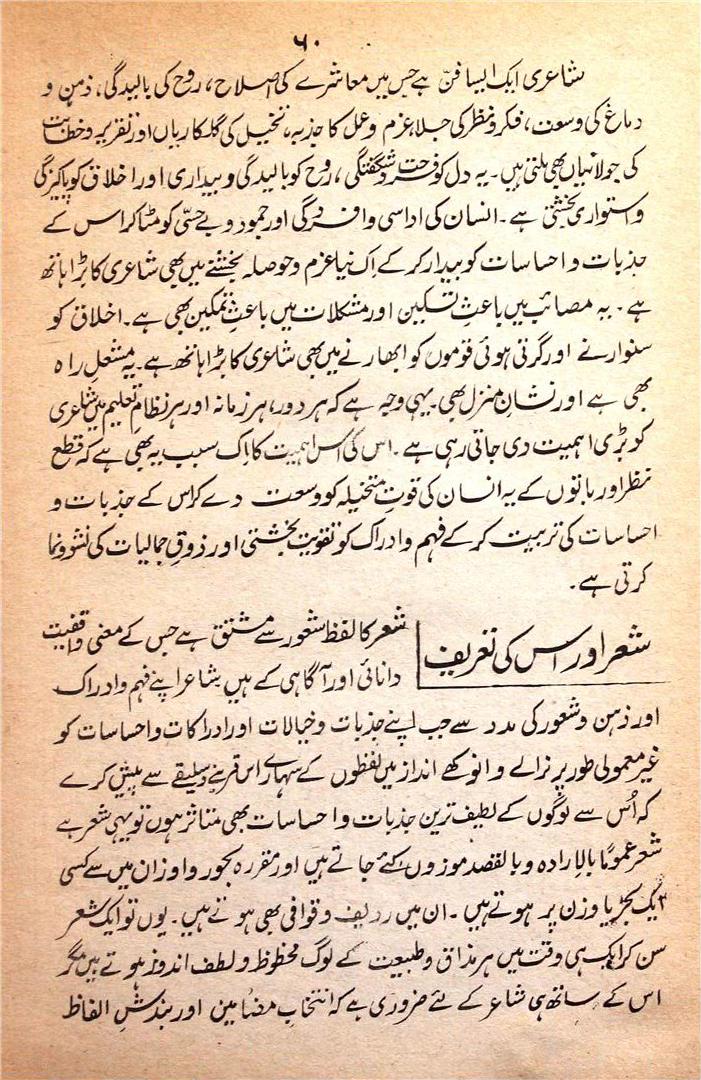 ۶۰
شاعری ایک ایسا فنّ ہے جس میں معاشرے کی اصلاح، روح کی بالیدگی، ذہن و
دماغ کی وسعت، فکر و نظر کی جلا، عزم و عمل کا جذبہ، تخیل کی گلکاریاں اور تقریر و خطابت
کی جولانیاں بھی ملتی ہیں۔ یہ دل کو فرحت و شگفتگی، روح کو بالیدگی و بیداری اور اخلاق کو پاکیزگی
و استواری بخشتی ہے۔ انسان کی اداسی و افسردگی اور جمود و بے حسّی کو مٹا کر اس کے
جذبات و احساسات کو بیدار کر کے اِک نیا عزم و حوصلہ بخشنے میں بھی شاعری کا بڑا ہاتھ
ہے۔ یہ مصائب میں باعثِ تسکین اور مشکلات میں باعثِ تمکین بھی ہے۔ اخلاق کو
سنوارنے اور گرتی ہوئی قوموں کو ابھارنے میں بھی شاعری کا بڑا ہاتھ ہے۔ یہ مشعلِ راہ
بھی ہے اور نشانِ منزل بھی۔ یہی وجہ ہے کہ ہر دور، ہر زمانہ اور ہر نظامِ تعلیم میں شاعری
کو بڑی اہمیت دی جاتی رہی ہے۔ اس کی اس اہمیت کا اِک سبب یہ بھی ہے کہ قطع
نظر اور باتوں کے یہ انسان کی قوتِ متخیلہ کو وسعت دے کر اس کے جذبات و
احساسات کی تربیت کر کے فہم و ادراک کو تقویت بخشتی اور ذوقِ جمالیات کی نشوونما
کرتی ہے۔
شعر اور اس کی تعریف
شعر کا لفظ شعور سے مشتق ہے جس کے معنی واقفیت
دانائی اور آگاہی کے ہیں شاعر اپنے فہم و ادراک
اور ذہن و شعور کی مدد سے جب اپنے جذبات و خیالات اور ادراکات و احساسات کو
غیر معمولی طور پر نرالے و انوکھے انداز میں لفظوں کے سہارے اس قرینے و سلیقے سے پیش کرے
کہ اُس سے لوگوں کے لطیف ترین جذبات و احساسات بھی متاثر ہوں تو یہی شعر ہے
شعر عموماً بالارادہ و بالقصد موزوں کئے جاتے ہیں اور مقررہ بحور و اوزان میں سے کسی
ایک بحر یا وزن پر ہوتے ہیں۔ ان میں ردیف و قوافی بھی ہوتے ہیں۔ یوں تو ایک شعر
سن کر ایک ہی وقت میں ہر مذاق و طبیعت کے لوگ محظوظ و لطف اندوز ہوتے ہیں مگر
اس کے ساتھ ہی شاعر کے لئے ضروری ہے کہ انتخابِ مضامین اور بندشِ الفاظ